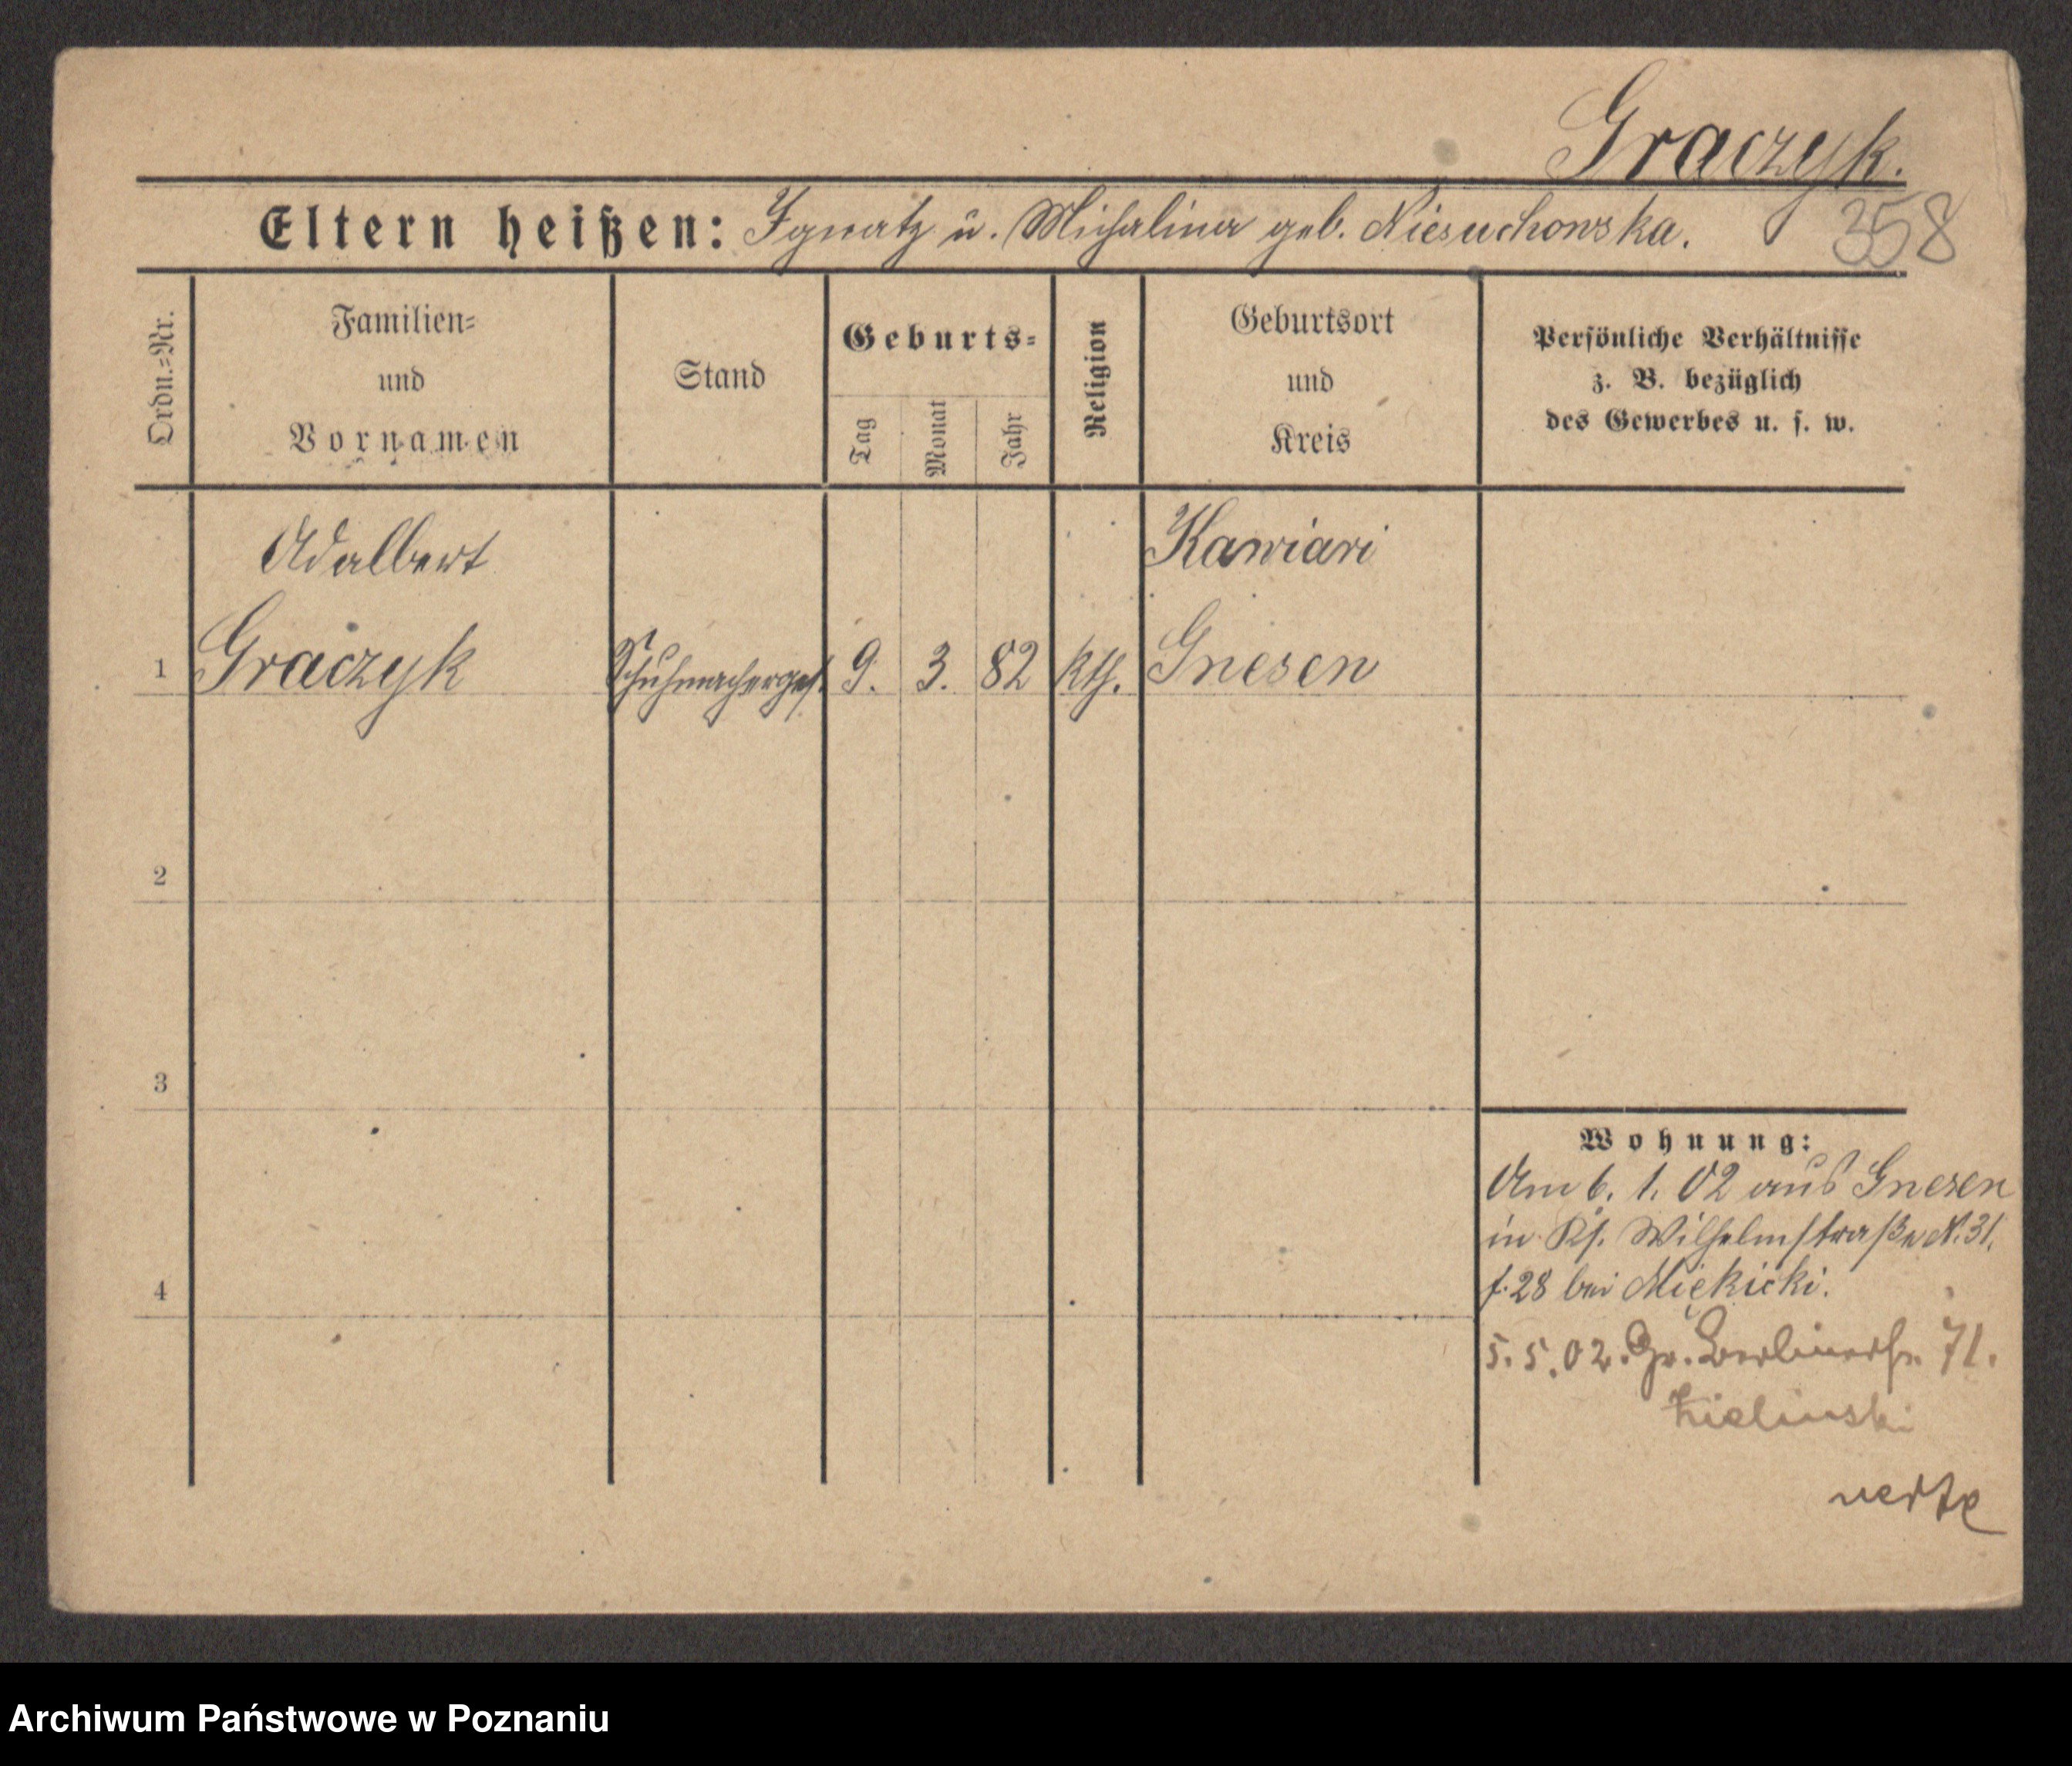 Graczyk.
Eltern heißen: Ignatz u. Michalina geb. Niesuchowska.
358
Ordn.=Nr.
Familien=
und
Vornamen
Stand
Geburts=
Tag
Monat
Jahr
Religion
Geburtsort
und
Kreis
Persönliche Verhältnisse
z. B. bezüglich
des Gewerbes u. s. w.
Adalbert
Kawiari
1 Graczyk Schuhmacherges. 9. 3. 82 kth. Gnesen
2
3
4
Wohnung:
Am 6. 1. 02 aus Gnesen
in Wilhelmstraße N. 31.
f. 28 bei Miękicki.
5. 5. 02. Gr. Berlinerstr. 71.
Zielinski
verte
Archiwum Państwowe w Poznaniu